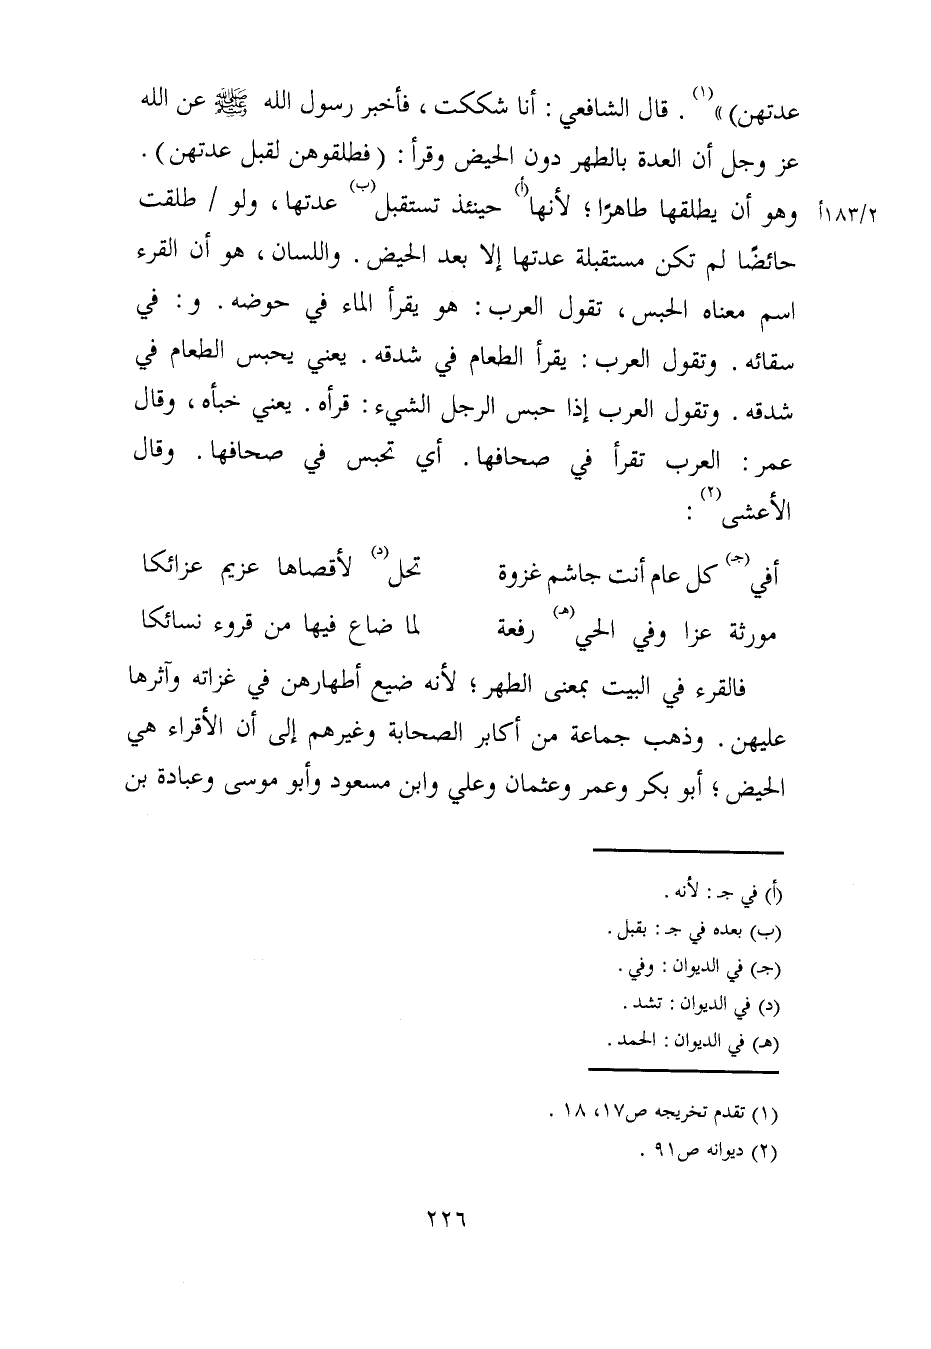 عدتهن)»(١). قال الشافعي: أنا شككت، فأخبر رسول الله ﷺ عن الله
عز وجل أن العدة بالطهر دون الحيض وقرأ: (فطلقوهن لقبل عدتهن).
وهو أن يطلقها طاهرًا؛ لأنها(أ) حينئذ تستقبل(ب) عدتها، ولو / طلقت ١٨٣/٢أ
حائضًا لم تكن مستقبلة عدتها إلا بعد الحيض. واللسان، هو أن القرء
اسم معناه الحبس، تقول العرب: هو يقرأ الماء في حوضه. و: في
سقائه. وتقول العرب: يقرأ الطعام في شدقه. يعني يحبس الطعام في
شدقه. وتقول العرب إذا حبس الرجل الشيء: قرأه. يعني خبأه، وقال
عمر: العرب تقرأ في صحافها. أي تحبس في صحافها. وقال
الأعشى(٢):
أفي(جـ) كل عام أنت جاشم غزوة تحل(د) لأقصاها عزيم عزائكا
مورثة عزا وفي الحي(هـ) رفعة لما ضاع فيها من قروء نسائكا
فالقرء في البيت بمعنى الطهر؛ لأنه ضيع أطهارهن في غزاته وآثرها
عليهن. وذهب جماعة من أكابر الصحابة وغيرهم إلى أن الأقراء هي
الحيض؛ أبو بكر وعمر وعثمان وعلي وابن مسعود وأبو موسى وعبادة بن
(أ) في جـ: لأنه.
(ب) بعده في جـ: بقبل.
(جـ) في الديوان: وفي.
(د) في الديوان: تشد.
(هـ) في الديوان: الحمد.
(١) تقدم تخريجه ص١٧، ١٨.
(٢) ديوانه ص٩١.
٢٢٦